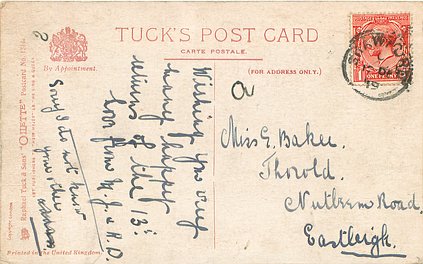 TUCK'S POST CARD
CARTE POSTALE.
By Appointment.
(FOR ADDRESS ONLY.)
Raphael Tuck & Sons' "OILETTE" Postcard No.
Printed in the United Kingdom.
2
a
Wishing you very
many happy
returns of the 13th
love from M. J. & H. D.
Sorry I do not know
your other
address
Miss G. Baker.
Thorold.
Nutbeem Road.
Eastleigh.